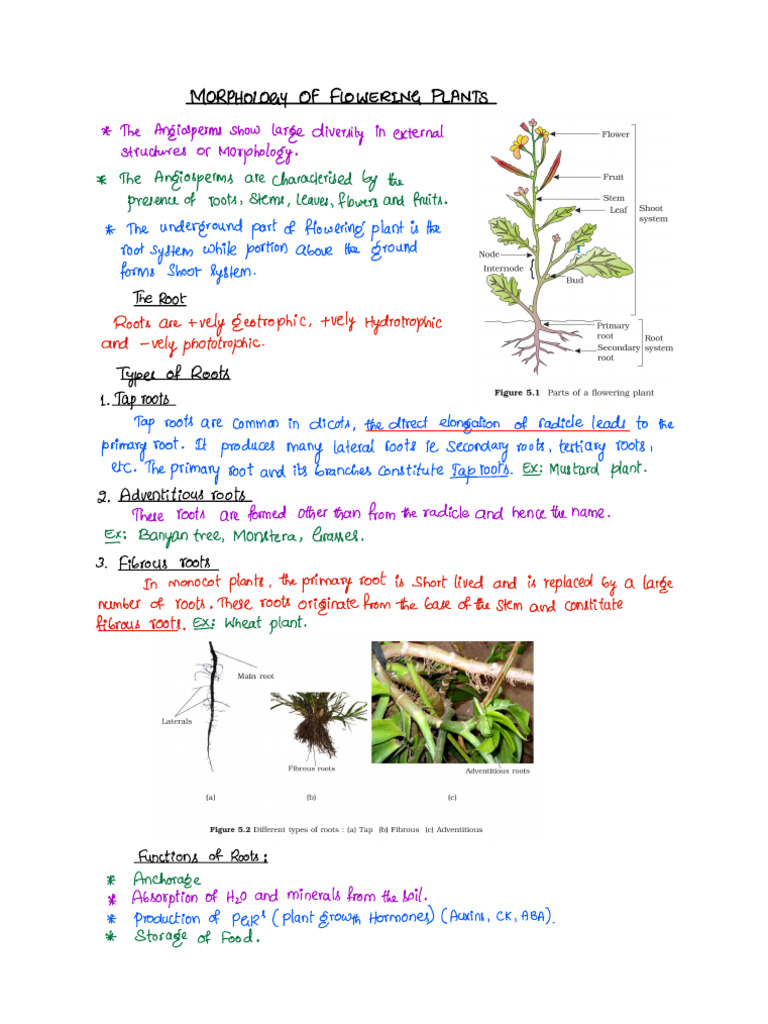 MORPHOLOGY OF FLOWERING PLANTS
* The Angiosperms show large diversity in external
structures or Morphology.
* The Angiosperms are characterised by the
presence of roots, stems, leaves, flowers and fruits.
* The underground part of flowering plant is the
root system while portion above the ground
forms shoot system.
Flower
Fruit
Stem
Leaf
Shoot
system
Node
Internode
Bud
Primary
root
Secondary
root
Root
system
Figure 5.1 Parts of a flowering plant
The Root
Roots are +vely geotrophic, +vely Hydrotrophic
and -vely phototrophic.
Types of Roots
1. Tap roots
Tap roots are common in dicots, the direct elongation of radicle leads to the
primary root. It produces many lateral roots ie secondary roots, tertiary roots,
etc. The primary root and its branches constitute Tap roots. Ex: Mustard plant.
2. Adventitious roots
These roots are formed other than from the radicle and hence the name.
Ex: Banyan tree, Monstera, Grasses.
3. Fibrous roots
In monocot plants, the primary root is short lived and is replaced by a large
number of roots. These roots originate from the base of the stem and constitate
fibrous roots. Ex: Wheat plant.
Main root
Laterals
Fibrous roots
Adventitious roots
(a) (b) (c)
Figure 5.2 Different types of roots : (a) Tap (b) Fibrous (c) Adventitious
Functions of Roots:
* Anchorage
* Absorption of H₂O and minerals from the soil.
* Production of PGRˢ (Plant growth Hormones) (Auxins, CK, ABA).
* Storage of Food.